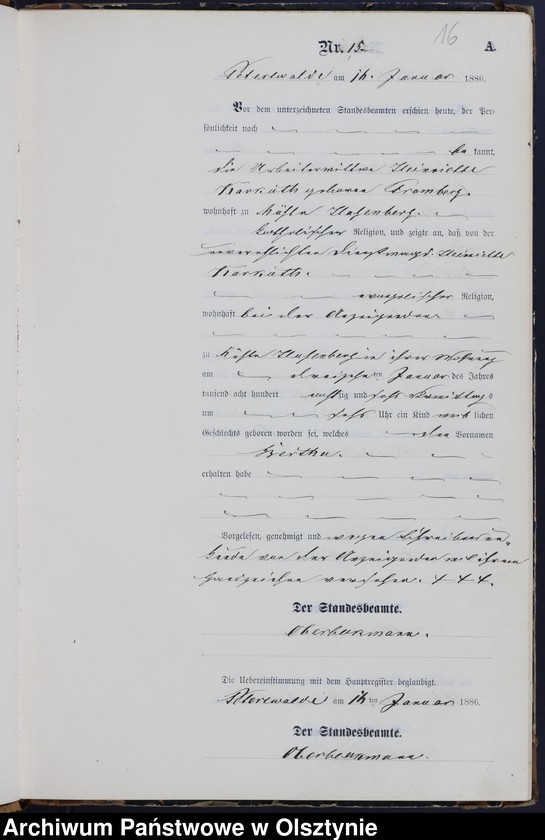 16
Nr. 15. A.
am 14. Januar 1886.
Vor dem unterzeichneten Standesbeamten erschien heute, der Per-
sönlichkeit nach
be kannt,
die Arbeiterwittwe Heinriette
Karkuth geborene Bromberg.
wohnhaft zu Mühle
katholischer Religion, und zeigte an, daß von der
unverehelichten Dienstmagd Heinriette
Karkuth.
evangelischer Religion,
wohnhaft bei der Anzeigenden
zu Mühle in ihrer Wohnung
am dreizehnten Januar des Jahres
tausend acht hundert achtzig und sechs Vormittags
um sechs Uhr ein Kind weiblichen
Geschlechts geboren worden sei, welches den Vornamen
Bertha.
erhalten habe
Vorgelesen, genehmigt und wegen Schreibensun-
kunde von der Anzeigenden mit ihrem
Handzeichen versehen. + + +.
Der Standesbeamte.
Die Uebereinstimmung mit dem Hauptregister beglaubigt.
am 14ten Januar 1886.
Der Standesbeamte.
Archiwum Państwowe w Olsztynie